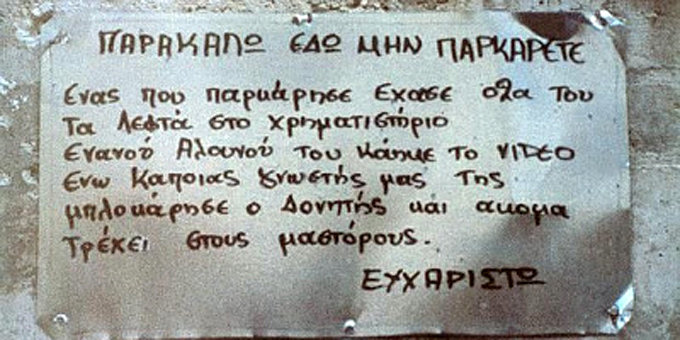 ΠΑΡΑΚΑΛΩ ΕΔΩ ΜΗΝ ΠΑΡΚΑΡΕΤΕ
Ενας που παρκάρησε Εχασε όλα του
Τα Λεφτά στο χρηματιστήριο
Ενανού Αλουνού του κάηκε το VIDEO
Ενω Καποιας γνωστής μας της
μπλοκάρησε ο Δονητής και ακομα
τρέχει στους μαστόρους.
ΕΥΧΑΡΙΣΤΩ